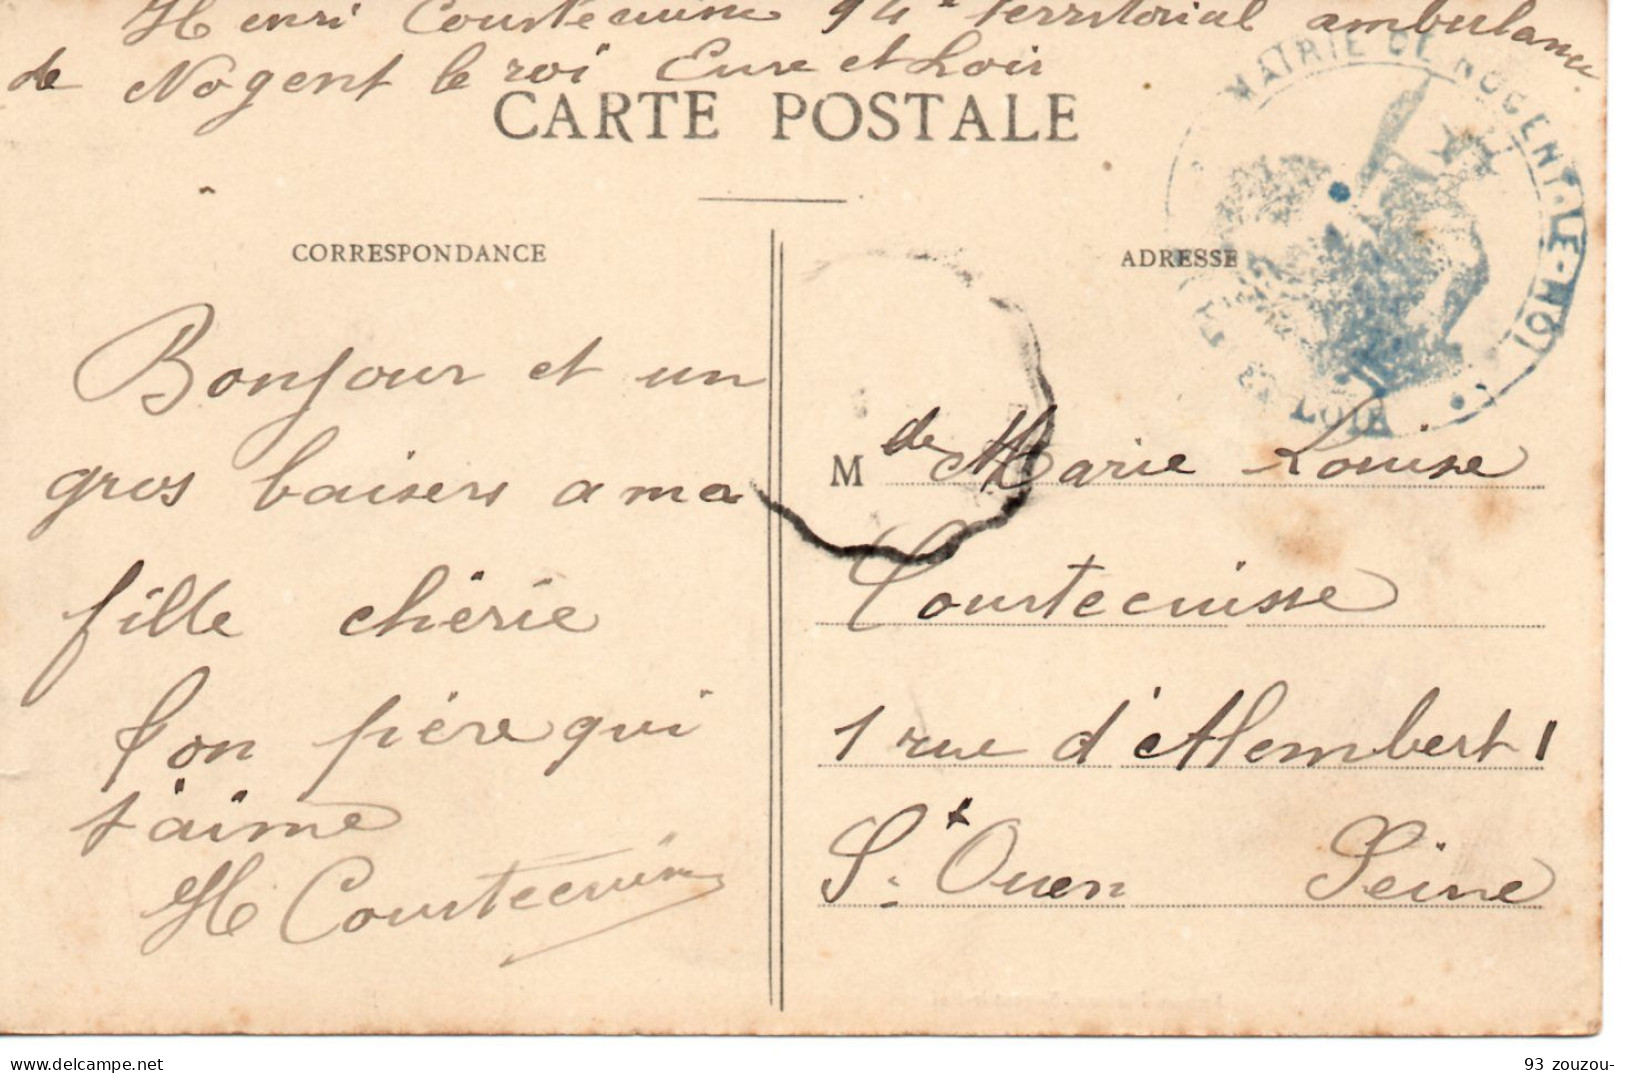 Henri Courtecuisse 94e territorial ambulance
de Nogent le roi Eure et Loir
CARTE POSTALE
MAIRIE DE NOGENT-LE-ROI
LOIR
CORRESPONDANCE
ADRESSE
Bonjour et un
gros baisers a ma
fille chérie
Ton père qui
t'aime
H Courtecuisse
Mde Marie Louise
Courtecuisse
1 rue d'Alembert 1
St Ouen Seine
delcampe.net
93 zouzou-